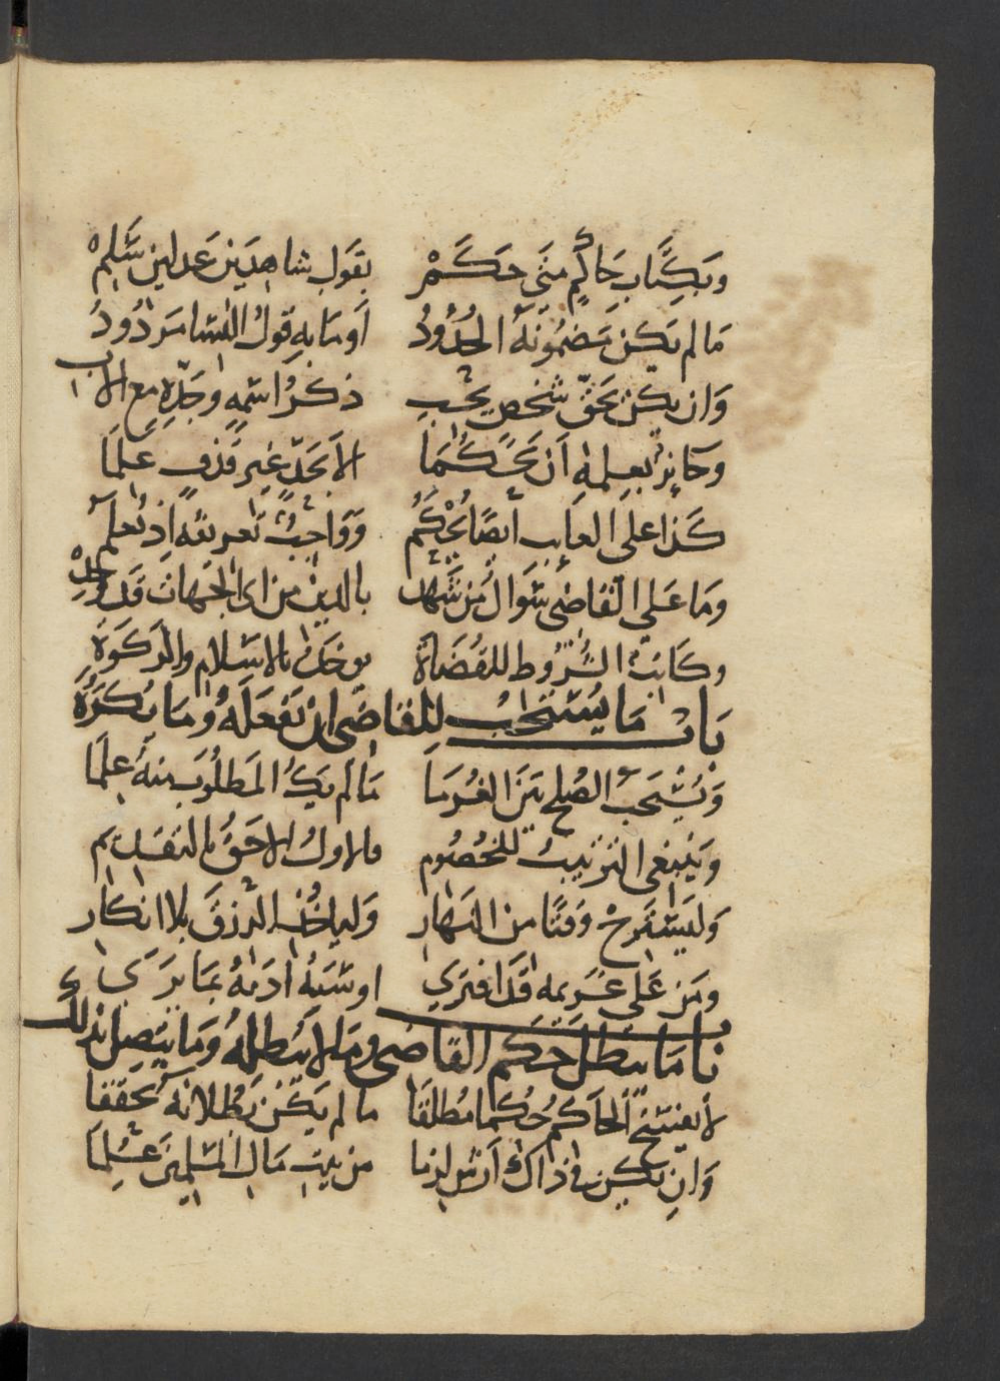 وبكتاب حاكم متى حكم بقول شاهدين عدلين سلم
ما لم يكن مضمونه الحدود او ما به قول النسا مردود
وان يكن بحق شخص يجب ذكر اسمه وجده مع الاب
وجايز بعلمه ان يحكما الا بحد غير قذف علما
كذا على الغايب ايضا يحكم وواجب تعريفه اذ يعلم
وما على القاضي سوال من شهد بالدين من اي الجهات قد وجد
وكانت الشروط للقضاة توخذ بالاسلام والذكورة
باب ما يستحب للقاضي ان يفعله وما يكره
ويستحب الصلح بين الغرما ما لم يك المطلوب منه علما
وينبغي الترتيب للخصوم فالاول الاحق بالتقديم
وليسترح وقتا من النهار ولياخذ الرزق بلا انكار
ومن على غريمه قد افترى او سبه ادبه بما يرى
باب ما يبطل حكم القاضي وما لا يبطله وما يتصل بذلك
لا يفسخ الحاكم حكما مطلقا ما لم يكن بطلانه تحققا
وان يكن في ذاك ارش لزما من بيت مال المسلمين